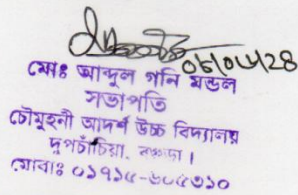 ০৮/০৮/২৪
মোঃ আব্দুল গনি মন্ডল
সভাপতি
চৌমুহনী আদর্শ উচ্চ বিদ্যালয়
দুপচাঁচিয়া, বগুড়া।
মোবাঃ ০১৭১৫-৬০৫৩১০